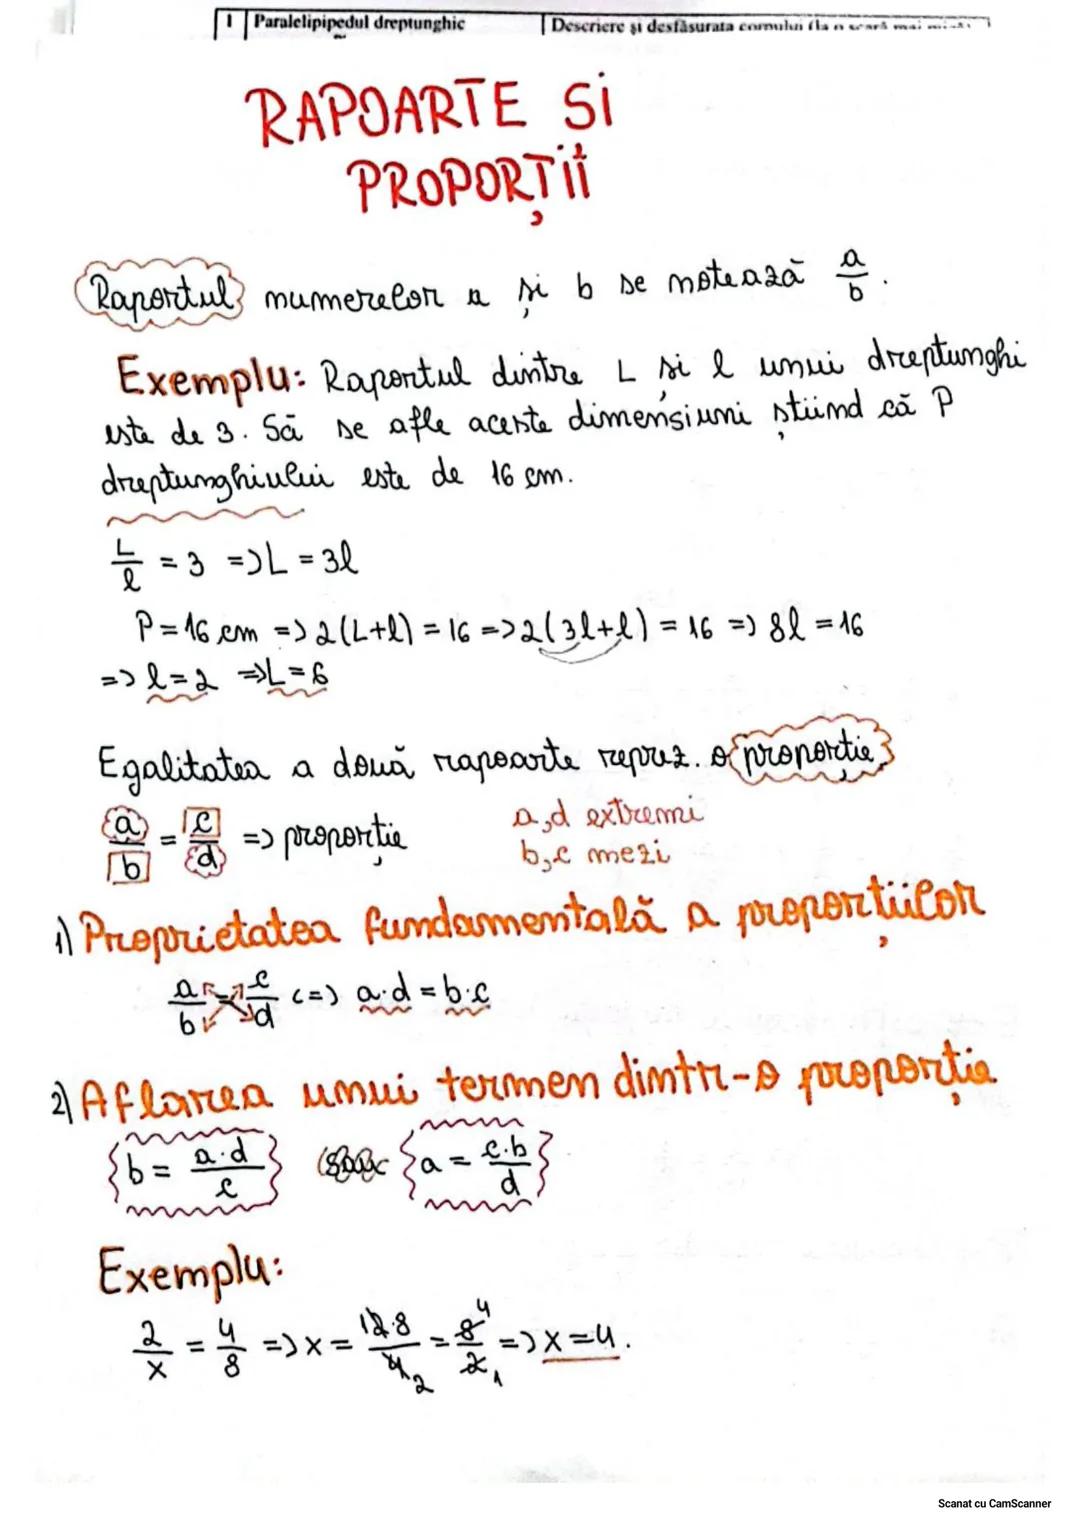 1 Paralelipipedul dreptunghic Descriere și desfășurata corpului (la o scară mai
RAPOARTE SI
PROPORȚII
Raportul numerelor a și b se notează a/b.
Exemplu: Raportul dintre L și l unui dreptunghi
este de 3. Să se afle aceste dimensiuni știind că P
dreptunghiului este de 16 cm.
L/l = 3 => L = 3l
P = 16 cm => 2(L+l) = 16 => 2(3l+l) = 16 => 8l = 16
=> l = 2 => L = 6
Egalitatea a două rapoarte reprez. o proporție
a/b = c/d => proporție a,d extremi
b,c mezi
1) Proprietatea fundamentală a proporțiilor
a/b = c/d <=> a·d = b·c
2) Aflarea unui termen dintr-o proporție
b = a·d/c a = c·b/d
Exemplu:
2/x = 4/8 => x = 12·8/4 2 = 8 4/2 1 => x = 4.
Scanat cu CamScanner